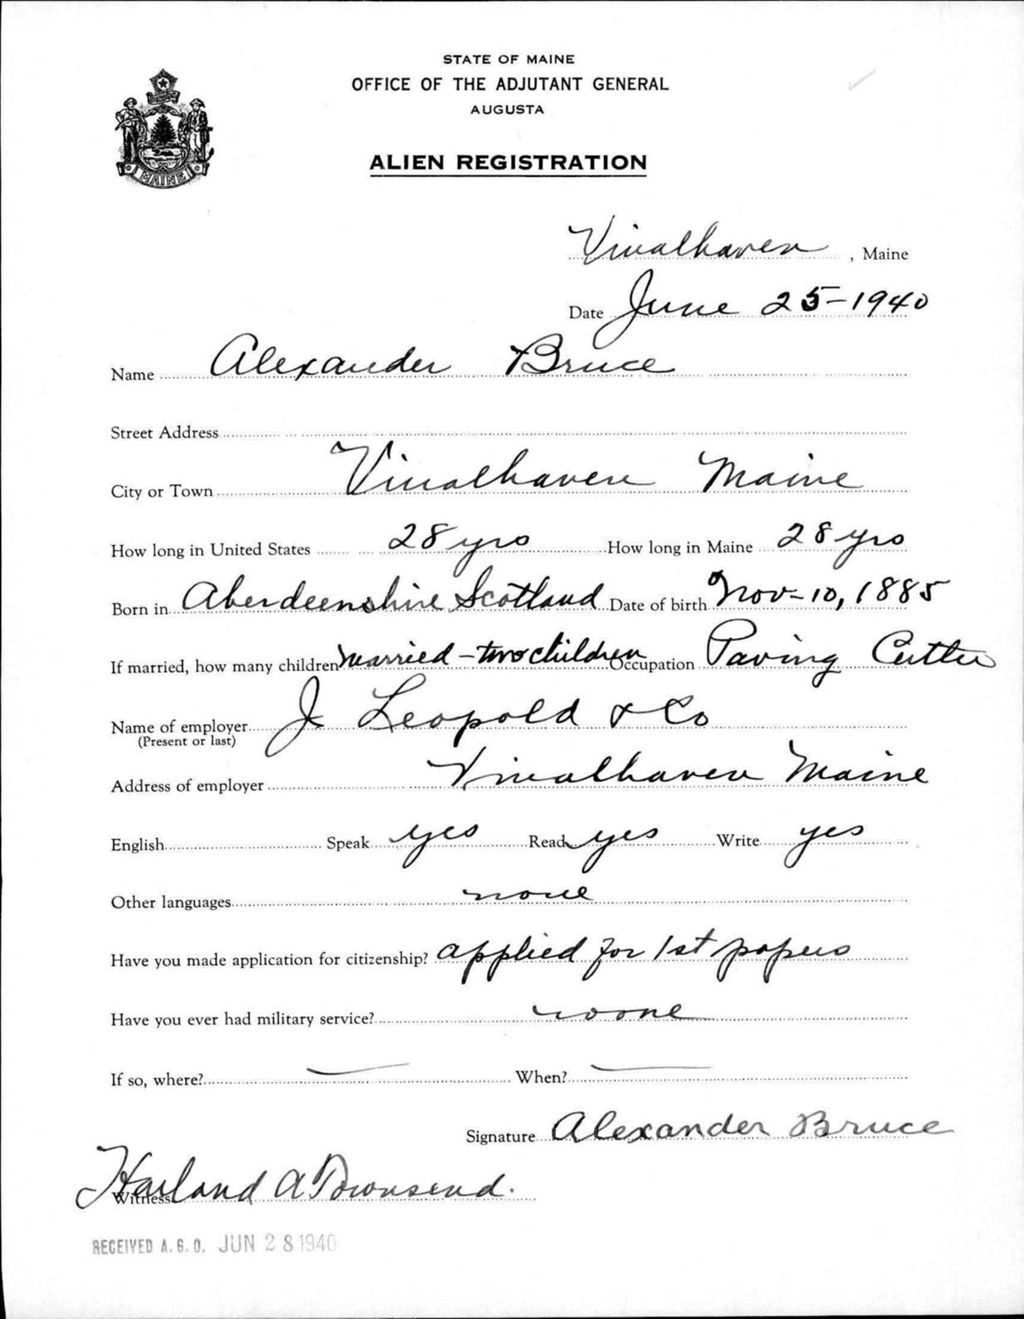 STATE OF MAINE
OFFICE OF THE ADJUTANT GENERAL
AUGUSTA
ALIEN REGISTRATION
MAINE
Vinalhaven, Maine
Date June 25-1940
Name Alexander Bruce
Street Address
City or Town Vinalhaven Maine
How long in United States 28 yrs How long in Maine 28 yrs
Born in Aberdeenshire Scotland Date of birth Nov-10, 1885
If married, how many children married - two children Occupation Paving Cutter
Name of employer J Leopold & Co
(Present or last)
Address of employer Vinalhaven Maine
English Speak yes Read yes Write yes
Other languages none
Have you made application for citizenship? applied for 1st papers
Have you ever had military service? none
If so, where? — When? —
Signature Alexander Bruce
Witness Harland A Townsend.
RECEIVED A.G.O. JUN 28 1940